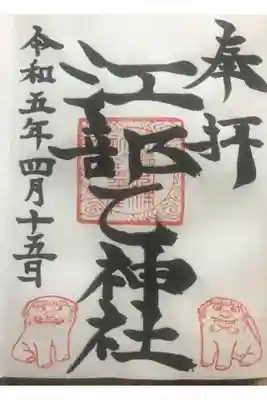 奉拝
江部乙神社
令和五年四月十五日